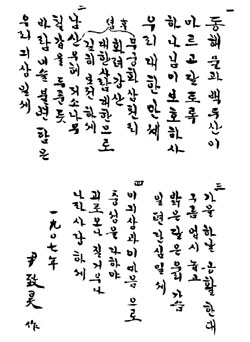 一
동해물과 백두산이
마르고 달토록
하나님이 보호하사
우리 대한 만세
후렴
무궁화 삼천리
화려강산
대한사람 대한으로
길히 보전하세
二
남산 우헤 저 소나무
철갑을 두른듯
바람 이슬 불변함은
우리 긔상일세
三
가을 하날 공활한대
구름 업시 높고
밝은 달은 우리 가슴
일편단심일세
四
이 긔상과 이 마음으로
충성을 다하야
괴로오나 질거우나
나라 사랑하세
一九〇七年
尹致昊 作